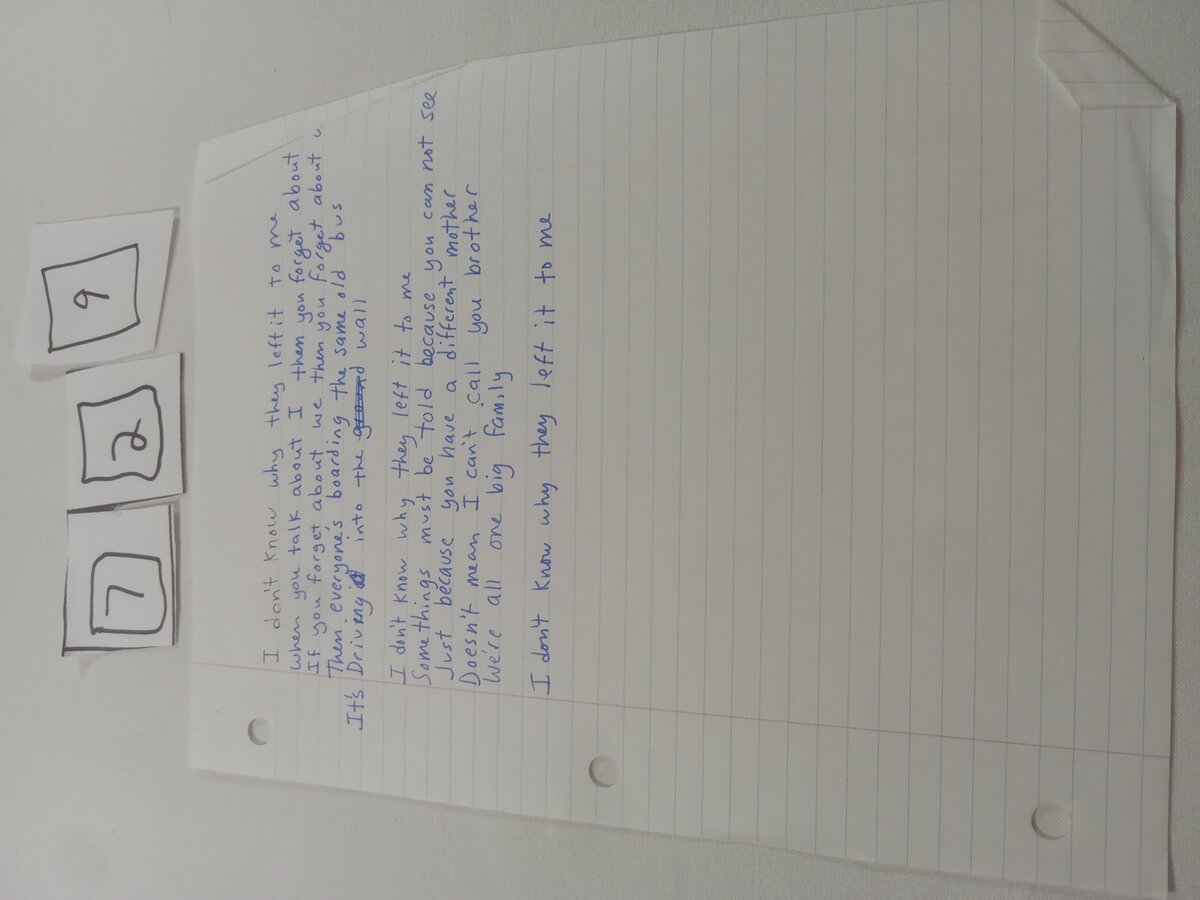 7 2 9
I don't know why they left it to me
When you talk about I then you forget about
If you forget about we then you forget about
Then everyone's boarding the same old bus
It's Driving into the wall
I don't know why they left it to me
Somethings must be told because you can not see
Just because you have a different mother
Doesn't mean I can't call you brother
We're all one big family
I don't know why they left it to me